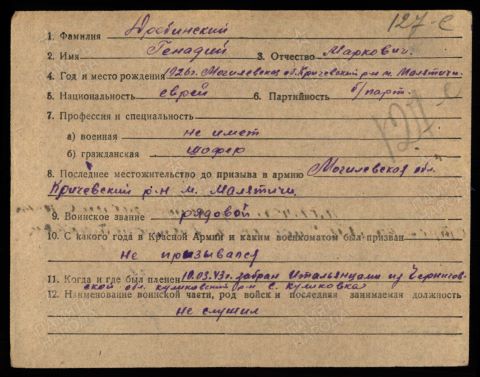 127-С
1. Фамилия Дробинский
2. Имя Генадий 3. Отчество Маркович.
4. Год и место рождения 1926г. Могилевская об. Кричевский р-н м. Малятичи
5. Национальность еврей 6. Партийность б/парт.
7. Профессия и специальность
а) военная не имет
б) гражданская шофер
127 с
8. Последнее местожительство до призыва в армию Могилевская обл.
Кричевский р-н м. Малятичи
9. Воинское звание рядовой
10. С какого года в Красной Армии и каким военкоматом был призван
не призывался
11. Когда и где был пленен 10.03.43г. забран Итальянцами из Чернигов-
ской обл. куликовский р-н с. куликовка
12. Наименование воинской части, род войск и последняя занимаемая должность
не служил